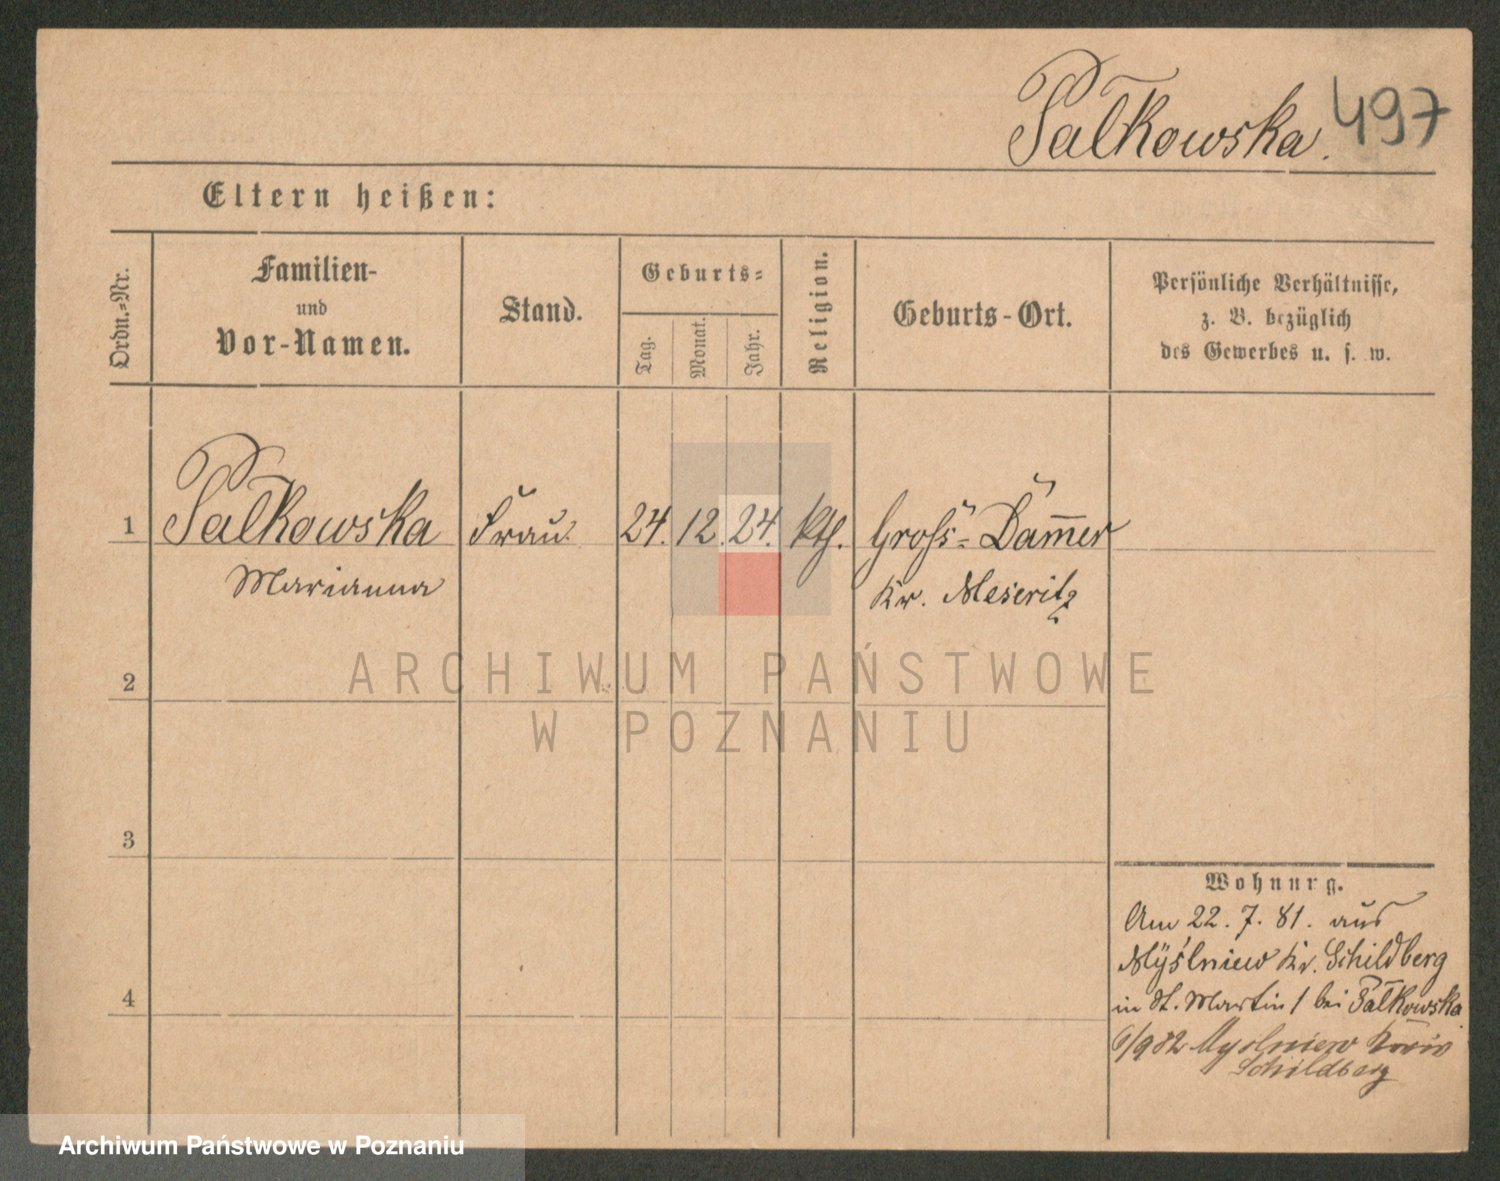 Pałkowska. 497
Eltern heißen:
Ordn.-Nr.
Familien-
und
Vor-Namen.
Stand.
Geburts-
Tag.
Monat.
Jahr.
Religion.
Geburts-Ort.
Persönliche Verhältnisse,
z. B. bezüglich
des Gewerbes u. s. w.
1 Pałkowska Frau 24. 12. 24. kth. Groß-Dammer
Marianna Kr. Meseritz
ARCHIWUM PAŃSTWOWE
W POZNANIU
2
3
4
Wohnung.
Am 22. 7. 81. aus
Myślniew Kr. Schildberg
in St. Martin 1 bei Pałkowska
6/9 82 Myslniew Kreis
Schildberg
Archiwum Państwowe w Poznaniu